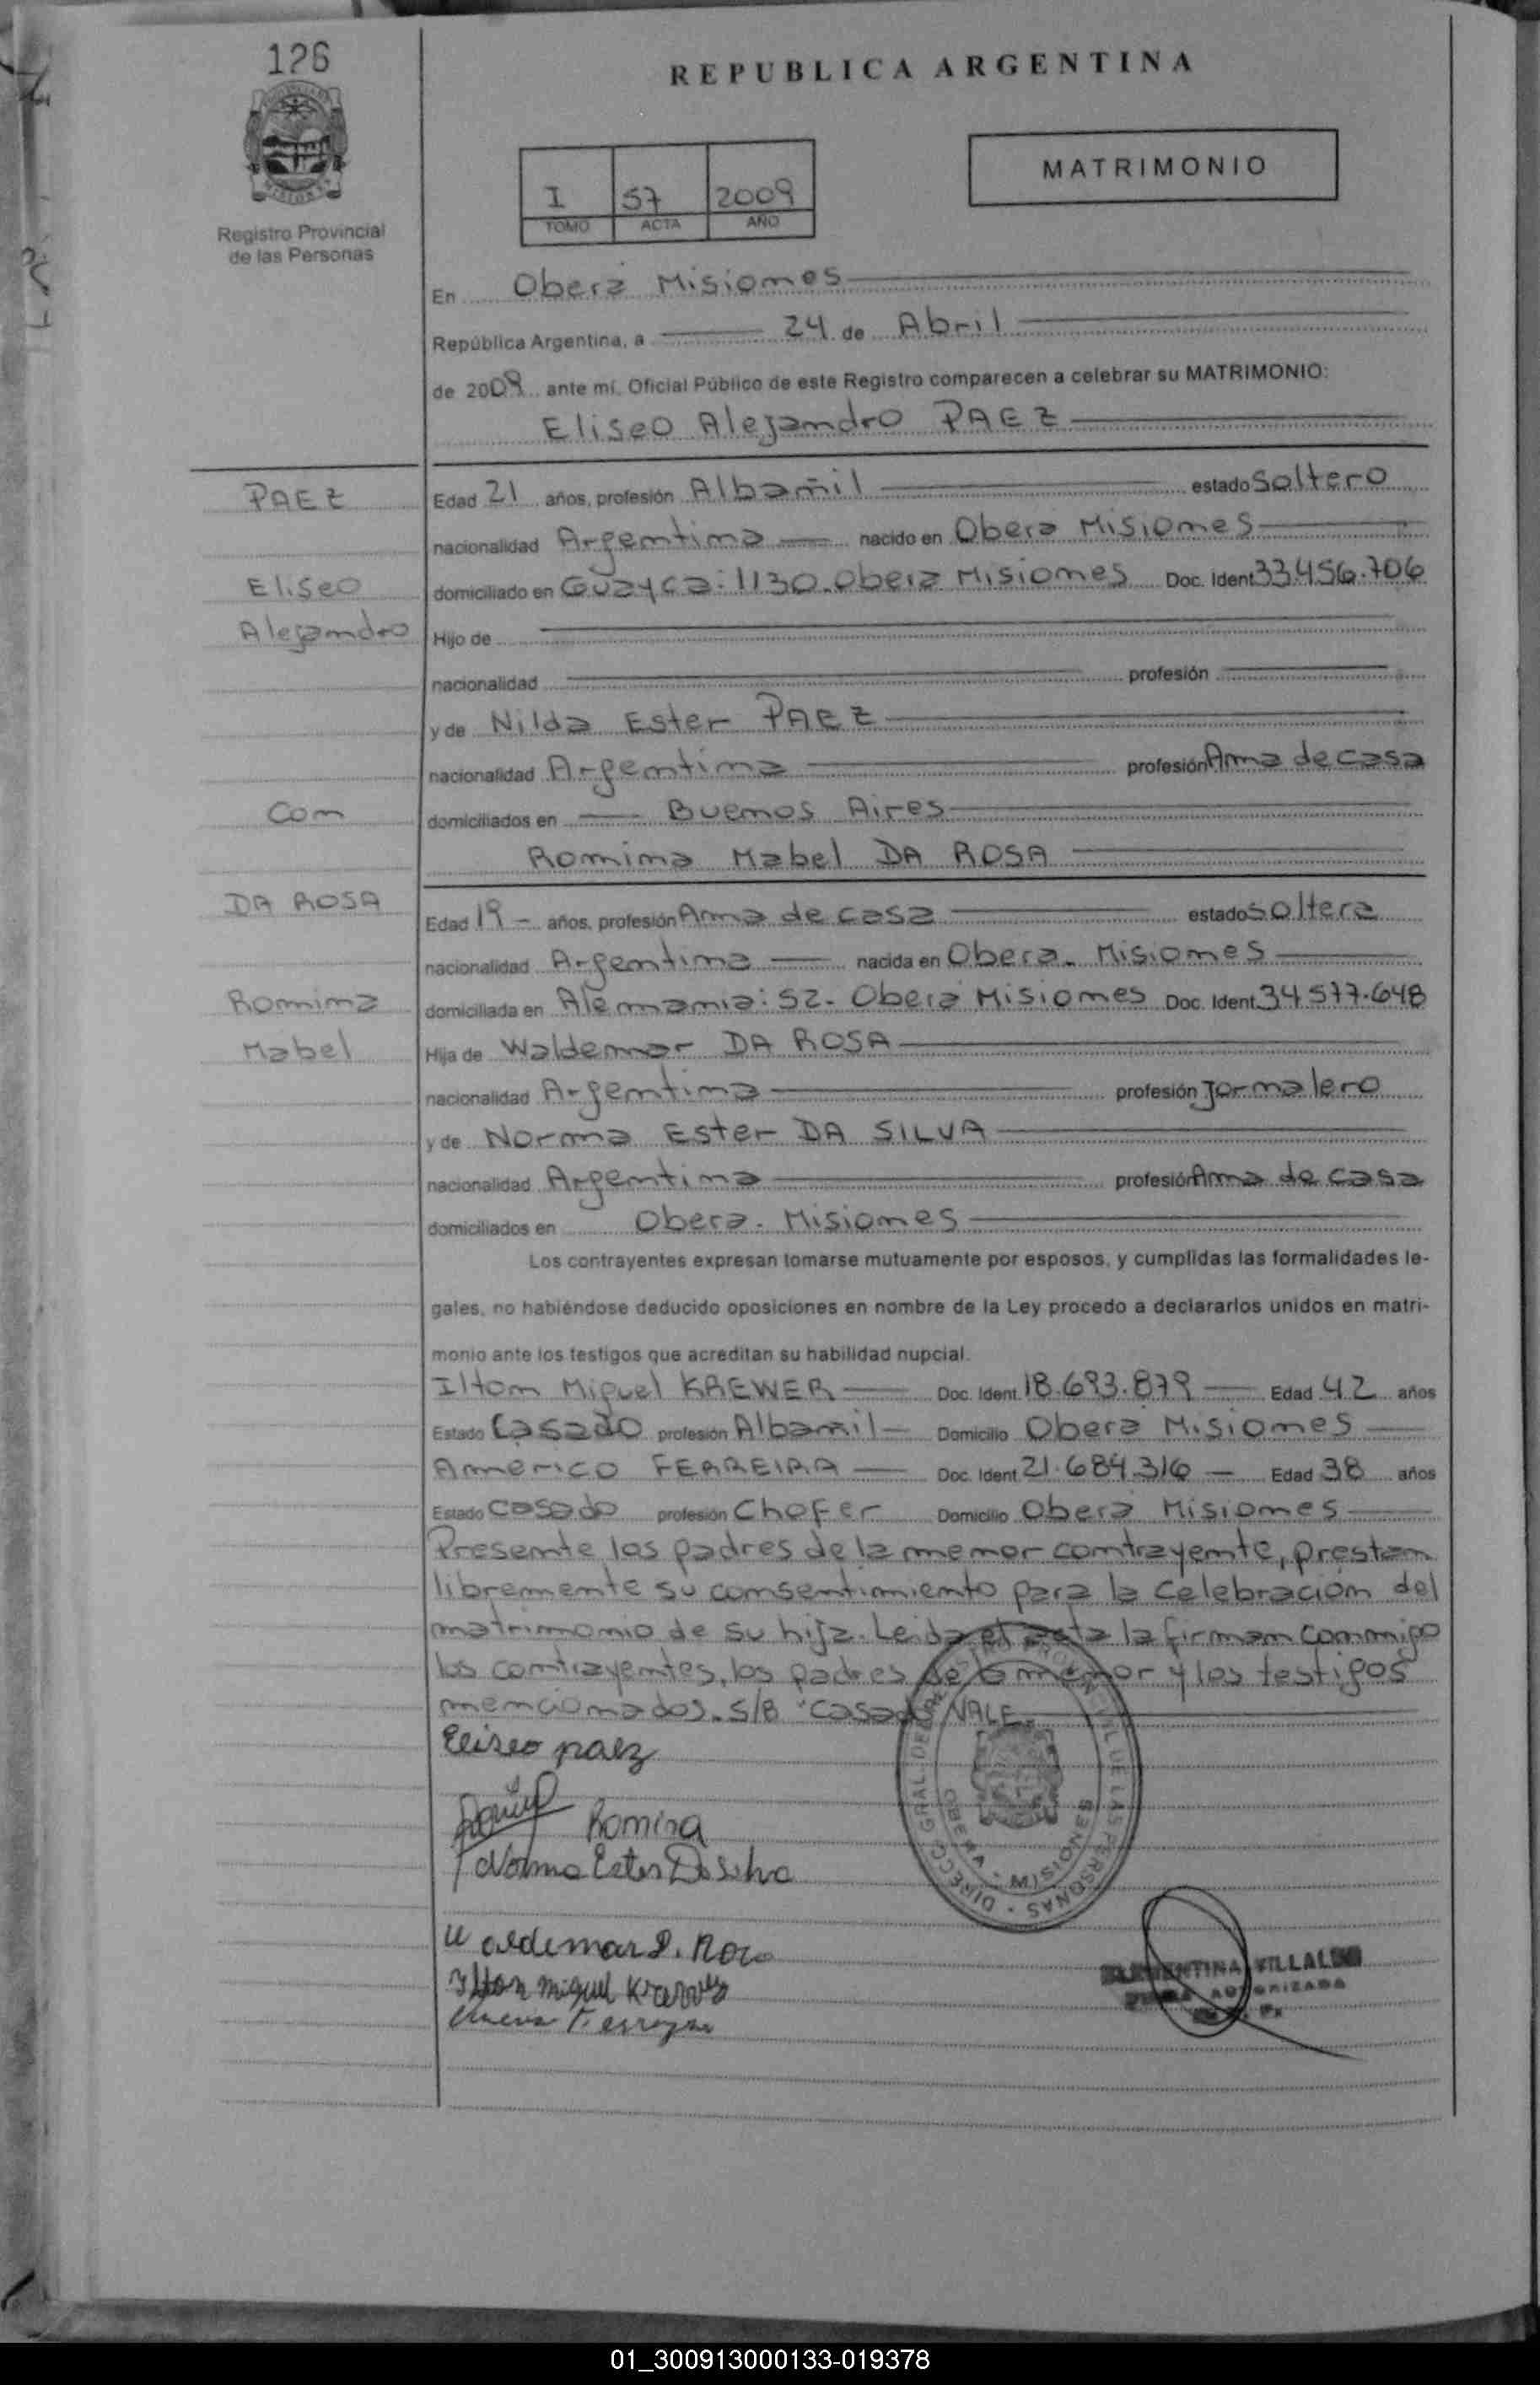 126
REPUBLICA ARGENTINA
MATRIMONIO
I 57 2009
TOMO ACTA AÑO
Registro Provincial
de las Personas
En Oberá Misiones
República Argentina, a 24 de Abril
de 2009 ante mí, Oficial Público de este Registro comparecen a celebrar su MATRIMONIO:
Eliseo Alejandro PAEZ
PAEZ
Edad 21 años, profesión Albañil estado Soltero
nacionalidad Argentina nacido en Obera Misiones
Eliseo
domiciliado en Guaycá: 1130. Oberá Misiones Doc. Ident. 33.456.706
Alejandro
Hijo de
nacionalidad profesión
y de Nilda Ester PAEZ
nacionalidad Argentina profesión Ama de casa
Con
domiciliados en Buenos Aires
Romina Mabel DA ROSA
DA ROSA
Edad 19 - años, profesión Ama de casa estado Soltera
nacionalidad Argentina nacida en Obera. Misiones
Romina
domiciliada en Alemania: 52. Oberá Misiones Doc. Ident. 34.577.648
Mabel
Hija de Waldemar DA ROSA
nacionalidad Argentina profesión Jornalero
y de Norma Ester DA SILVA
nacionalidad Argentina profesión Ama de casa
domiciliados en Obera. Misiones
Los contrayentes expresan tomarse mutuamente por esposos, y cumplidas las formalidades le-
gales, no habiéndose deducido oposiciones en nombre de la Ley procedo a declararlos unidos en matri-
monio ante los testigos que acreditan su habilidad nupcial.
Ilton Miguel KREWER Doc. Ident. 18.693.879 Edad 42 años
Estado Casado profesión Albañil Domicilio Oberá Misiones
Americo FERREIRA Doc. Ident. 21.684.316 Edad 38 años
Estado Casado profesión Chofer Domicilio Oberá Misiones
Presente los padres de la menor contrayente, prestan
libremente su consentimiento para la celebración del
matrimonio de su hija. Leida el acta la firman conmigo
los contrayentes, los padres de la menor y los testigos
mencionados. S/B "Casado" VALE.
Eliseo paez
Romina
Norma Ester Da Silva
Waldemar D. Rosa
Ilton Miguel Krewer
DIRECC. GRAL. DEL REGISTRO PROVINCIAL DE LAS PERSONAS
OBERA - MISIONES
VILLALBA
AUTORIZADA
01_300913000133-019378